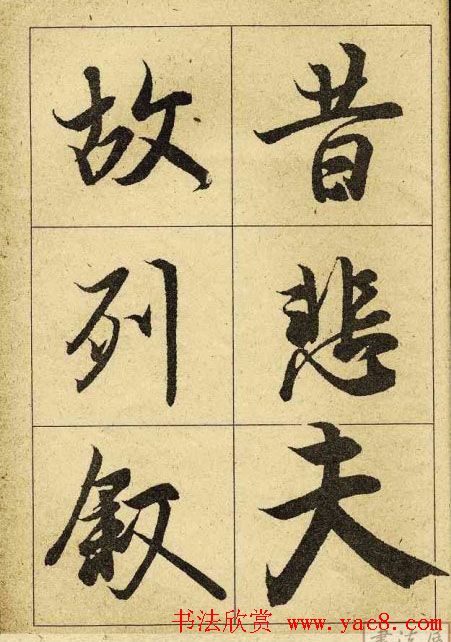 昔悲夫
故列叙
书法欣赏 www.yac8.com